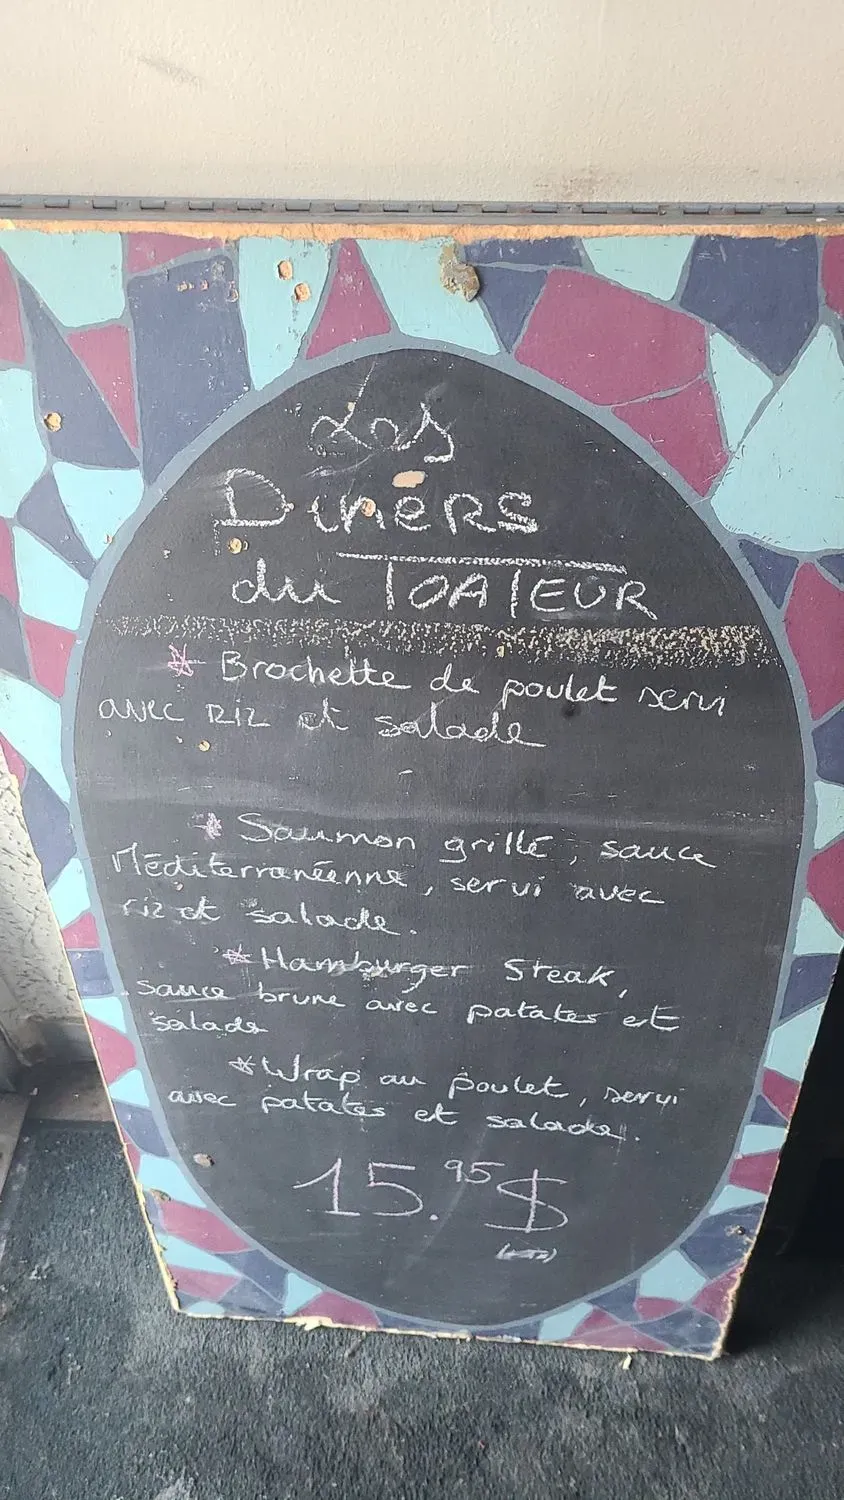 Les
Diners
du TOATEUR
* Brochette de poulet servi
avec RIZ et salade
* Saumon grillé, sauce
Méditerranéenne, servi avec
riz et salade.
* Hamburger Steak,
sauce brune avec patates et
salade
* Wrap au poulet, servi
avec patates et salade.
15.95$